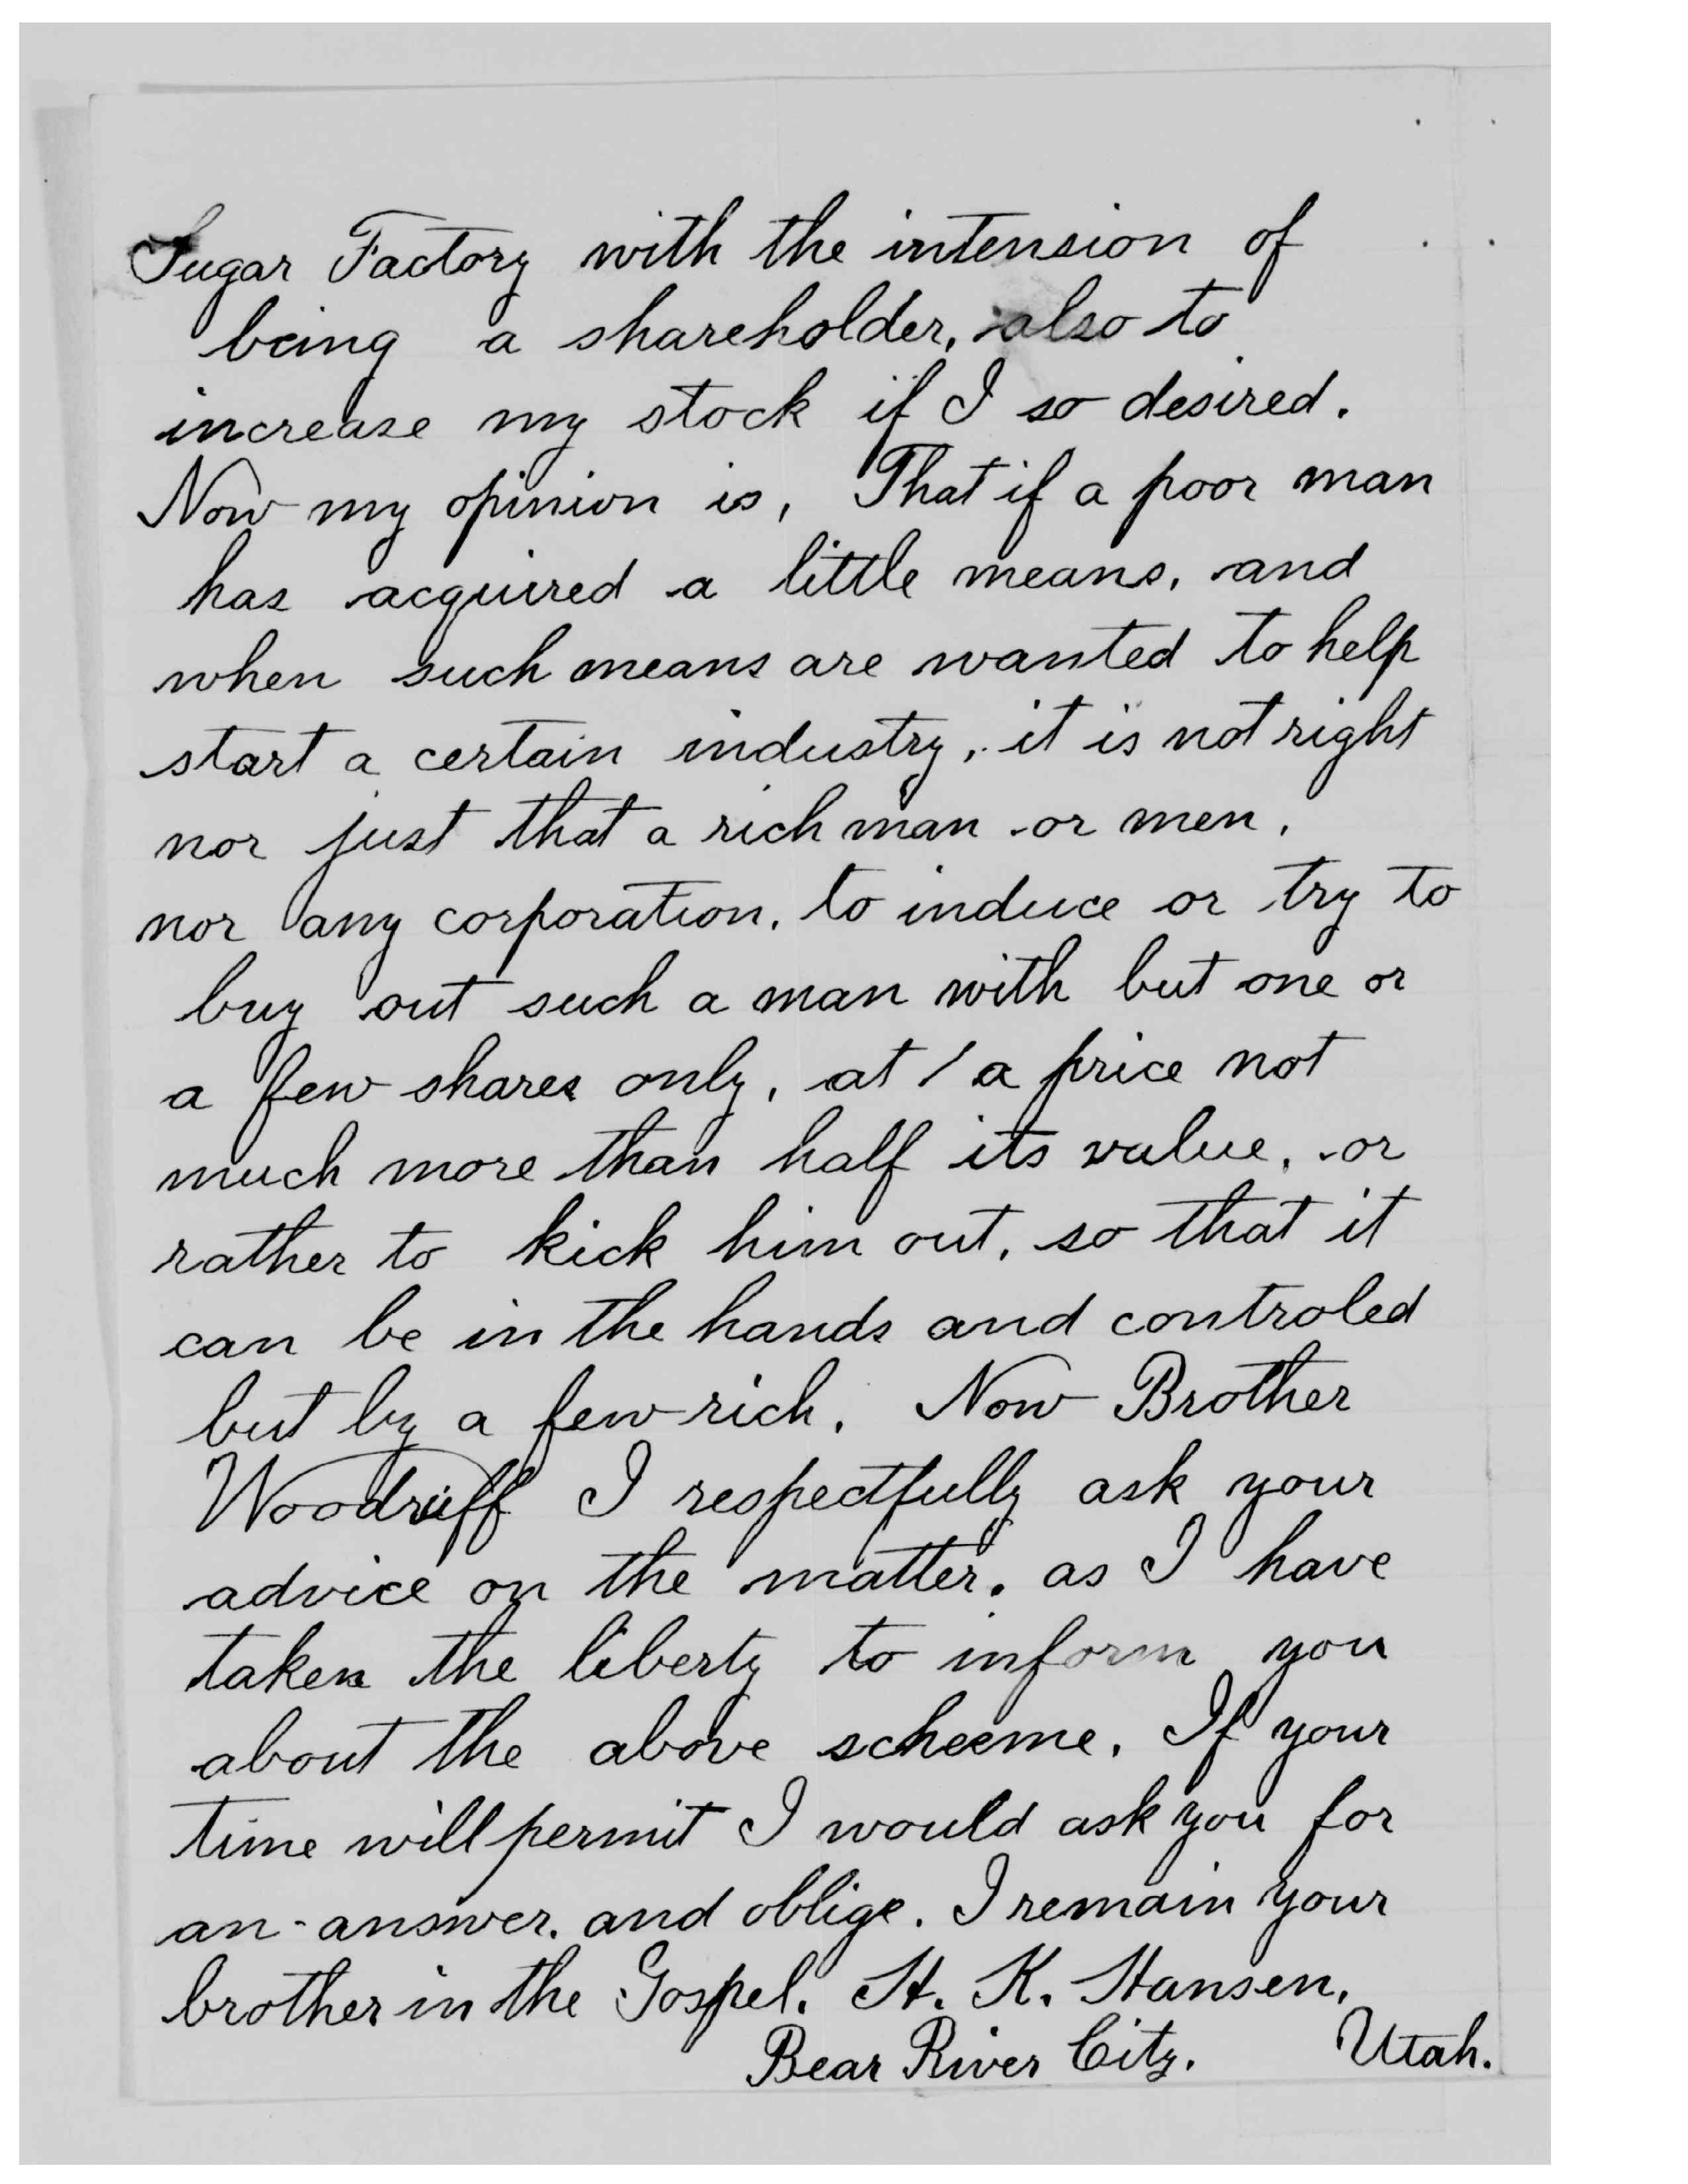 Sugar Factory with the intension of
being a shareholder, also to
increase my stock if I so desired.
Now my opinion is, That if a poor man
has acquired a little means, and
when such means are wanted to help
start a certain industry, it is not right
nor just that a rich man or men,
nor any corporation, to induce or try to
buy out such a man with but one or
a few shares only, at / a price not
much more than half its value, or
rather to kick him out, so that it
can be in the hands and controled
but by a few rich. Now Brother
Woodruff I respectfully ask your
advice on the matter. as I have
taken the liberty to inform you
about the above scheeme. If your
time will permit I would ask you for
an answer. and oblige. I remain your
brother in the Gospel. H. K. Hansen,
Bear River City. Utah.